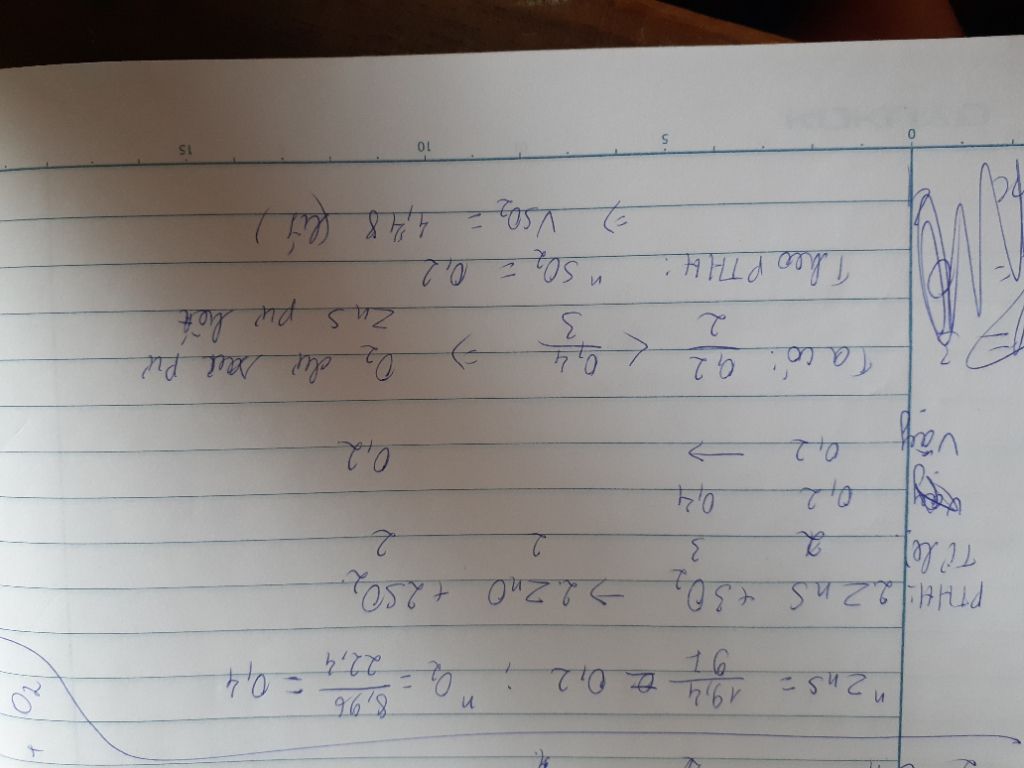 + O₂
nZnS = 19,4/97 = 0,2 ; nO₂ = 8,96/22,4 = 0,4
PTHH: 2ZnS + 3O₂ → 2ZnO + 2SO₂
Tỉ lệ 2 3 2 2
0,2 0,4
Vậy 0,2 → 0,2
Ta có: 0,2/2 < 0,4/3 => O₂ dư sau pư
ZnS pư hết
Theo PTHH: nSO₂ = 0,2
=> VSO₂ = 4,48 (lít)
0 5 10 15